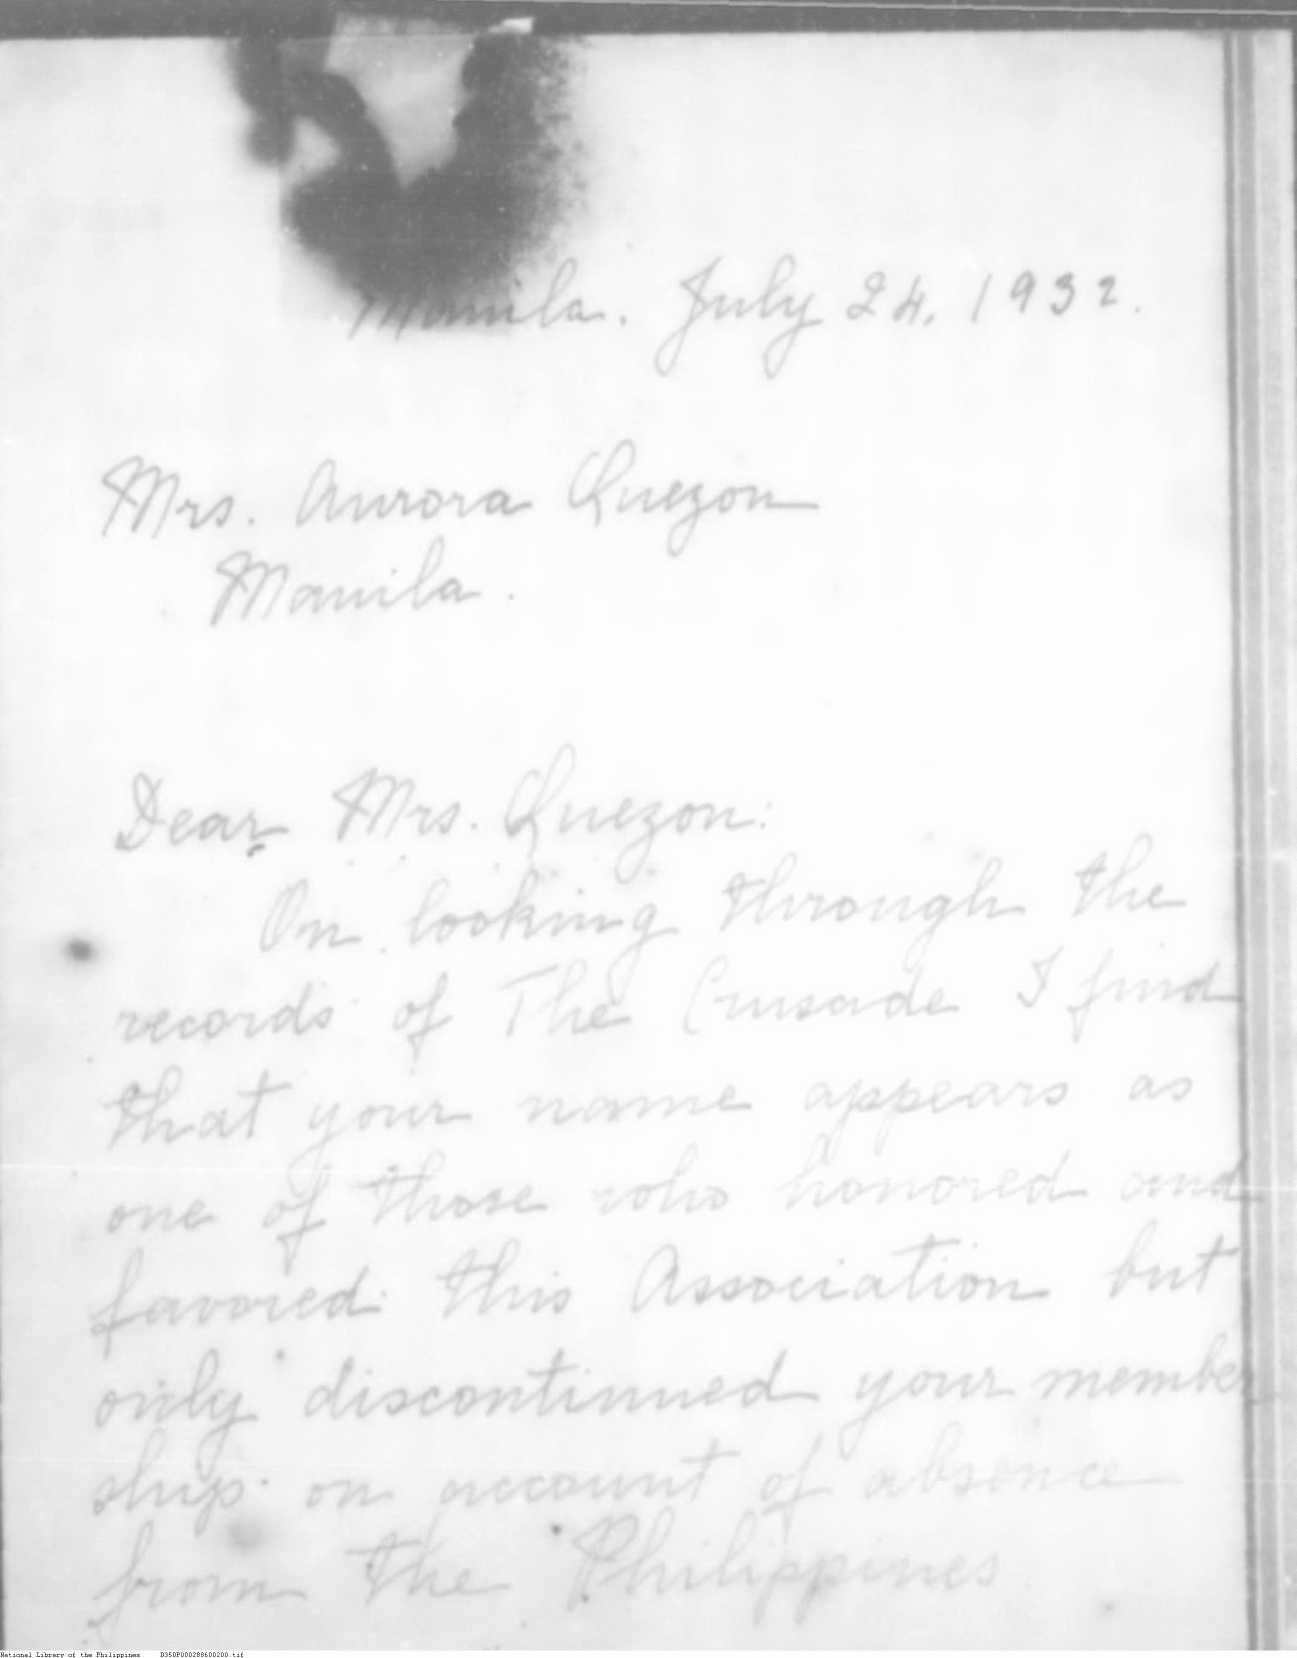 Manila. July 24, 1932.
Mrs. Aurora Quezon
Manila.
Dear Mrs. Quezon:
On looking through the
records of The Crusade I find
that your name appears as
one of those who honored and
favored this Association but
only discontinued your member
ship on account of absence
from the Philippines
National Library of the Philippines D350P000288600200.tif